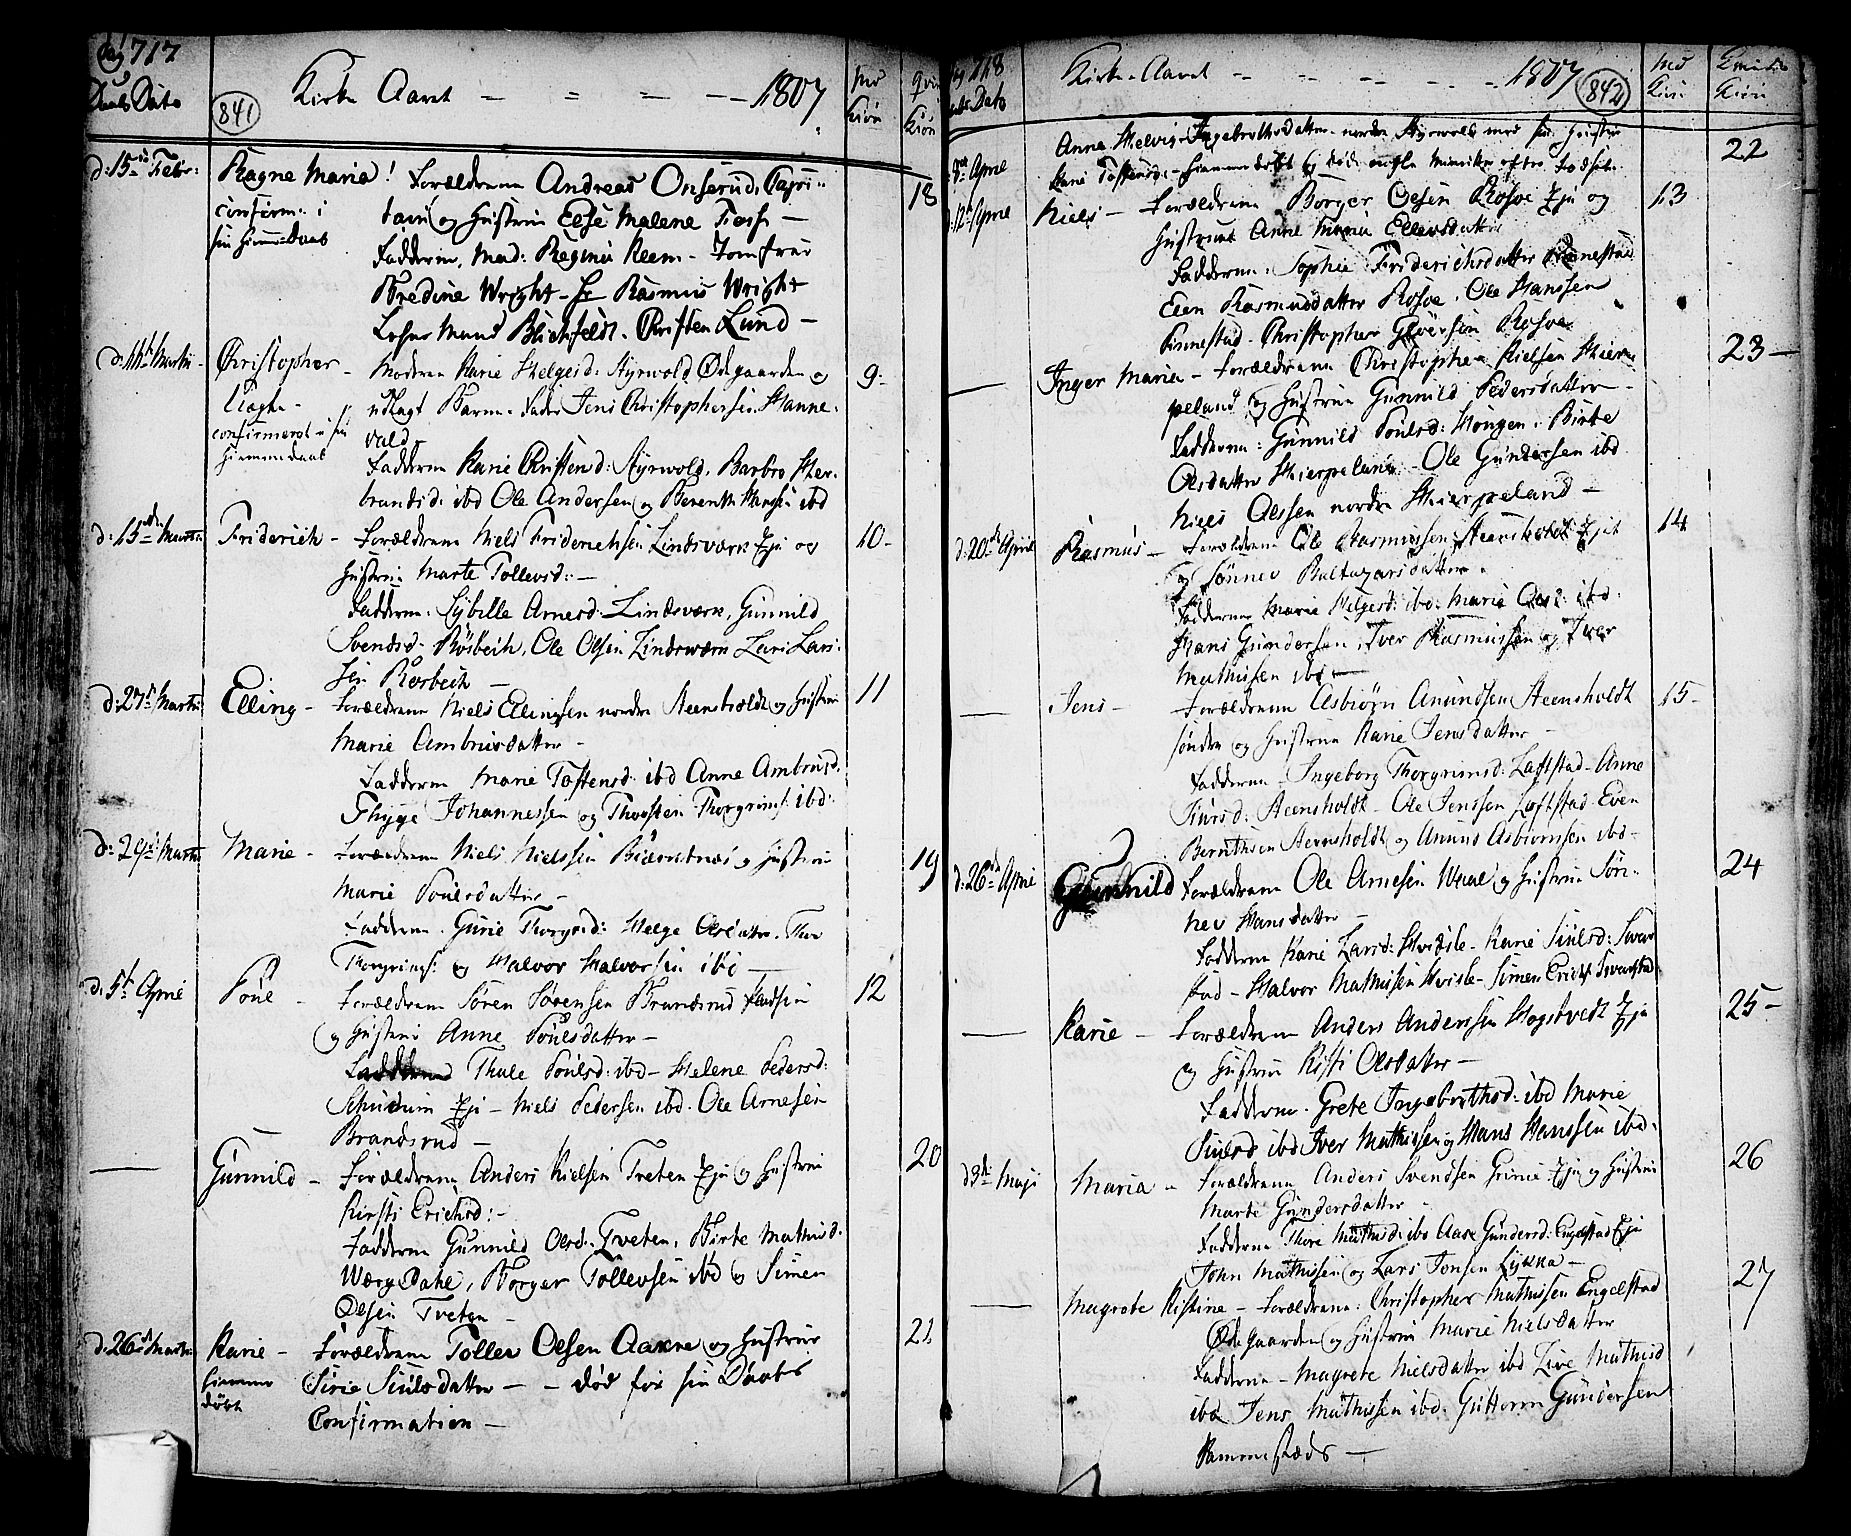 Pag 717
Daabs Dato
841
Kirke Aaret — = — — 1807
Md Kiön
Qvi Kiön
d: 15de Febr:
Ragne Maria! Forældrene Andreas Onserud, Capi:
18
confirm: i
tain og Hustrue Else Malene Foss —
sin Hiemedaab
Fadderne, Mad: Regina Reem — Jomfrue
Bredine Wright — Hr Rasmus Wright
Mund Blichfeldt. Christen Lund —
Martii
Christopher — Moderen Karie Helgesd: Styrwold Ødegaarden og
9
udlagt Barne-Fader Jens Christophersen Hanne-
confirmeret i sin
vald
Hiemmedaab
Fadderne Karie Christensd: Styrwold, Barbro Her-
brandsd: ibd Ole Andersen og Berenth Hansen ibd
d: 15de Martii
Friderich — Forældrene Niels Friderichsen Lindsværn Eje og
10 —
Hustrue Marte Tollevsd: —
Fadderne: Sybille Arnesd: Lindsværn, Gunnild
Svendsd: Rösbech, Ole Olsen Lindsværn Lars Lar-
sen Rosbech —
d: 27de Martii
Elling — Forældrene Niels Ellingsen nordre Steensholdt og Hustrue
11
Marie Ambrusdatter —
Fadderne Marie Tostensd: ibd Anne Ambrusd.
Thyge Johannessen og Thorsten Thorgrims: ibd:
d: 29de Martii
Marie — Forældrene Niels Nielssen Biærntnæs og Hustrue
19
Marie Poulsdatter —
Fadderne. Gurie Thorgrsd: Helge Olsdatter. Thor
Thorgrims: og Halvor Halvorsen ibd —
d. 5te April
Poul — Forældrene Sören Sörensen Brandsrud
12
og Hustrue Anne Poulsdatter —
Fadderne Thale Poulsd: ibd — Helene Pedersd:
Eje — Niels Pedersen ibd. Ole Arnesen
Brandsrud —
—
Gunnild — Forældrene Anders Nielsen Tveten Eje og Hustrue
20
Kirsti Erichsd: —
Fadderne Gunnild Olsd: Tveten, Birte Mathisd.
Wærgedahl, Borger Tollevsen ibd og Simen
Olsen Tveten —
d: 26de Martii
Karie — Forældrene Tollev Olsen Aakne og Hustrue
21
hiemme
Sirie Siulsdatter — — död för sin Daabs
döbt
Confirmation —
Pag 718
Daabs Dato
Kirke-Aaret — — — — — 1807
842
Md Kiön
Qvinde Kiön
April
Anna Helvig Ingebrethsdatter nordre Styrwold med sin Hustrue
22
Kari Tostensd: — hiemmedöbt og döde nogle Minuter efter Födsel.
12te April
Niels — Forældrene Borger Olsen Rosoe Eje og
13
Hustrue Anne Maria Ellevsdatter
Fadderne: Sophie Friderichsdatter Rinnestad
Elen Rasmusdatter Rosoe. Ole Hanssen
Rinnestad — Christopher Rosoe
—
Inger Maria — Forældrene Christopher Nielsen Skier-
23 —
peland og Hustrue Gunnild Pedersdatter —
Fadderne: Gunnild Poulsd: Hougen. Birte
Olsdatter Skierpeland — Ole Gundersen ibd
Niels Olssen nordre Skierpeland —
d: 20de April
Rasmus — Forældrene Ole Rasmussen Steensholdt Eje
14
og Sönnev Baltazarsdatter.
Fadderne Marie Helgesd: ibd. Maria Olsd: ibd:
Hans Gundersen, Iver Rasmussen og Iver
Mathissen ibd —
—
Jens — Forældrene Asbiörn Amundsen Steensholdt
15 —
söndre og Hustrue Karie Jensdatter —
Fadderne. Ingeborg Thorgrimsd: Laftstad — Anne
Siursd: Steensholdt — Ole Jenssen Laftstad — Even
Bernthsen Steensholdt og Amund Asbiornsen ibd —
d: 26de April
Gunnild Forældrene Ole Arnesen og Hustrue Sön-
24
nev Hansdatter —
Fadderne Karie Larsd: Hvidsle — Karie Siulsd: Svar
stad — Halvor Mathissen Hvisle — Simen Erichs Svarstad
—
Karie — Forældrene Anders Anderssen Hogstvedt Eje
25 —
og Hustrue Kisti Olsdatter —
Fadderne. Grete Ingebrethsd: ibd Marie
Siulsd ibd Iver Mathissen og Hans Hanssen ibd.
d 3de Maji
Maria — Forældrene Anders Svendsen Grime Eje og Hustrue
26
Marte Gundersdatter —
Fadderne Thore Mathisd: ibd Aase Gundersd: Engelstad Eje
John Mathissen og Lars Jonsen Lysna —
—
Magrete Kistine — Forældrene: Christopher Mathissen Engelstad
27
Ødegaarden og Hustrue Marie Nielsdatter
Fadderne — Magrete Nielsdatter ibd Live Mathisd
ibd Jens Mathissen ibd. Guttorm Gundersen
Sammestæds —